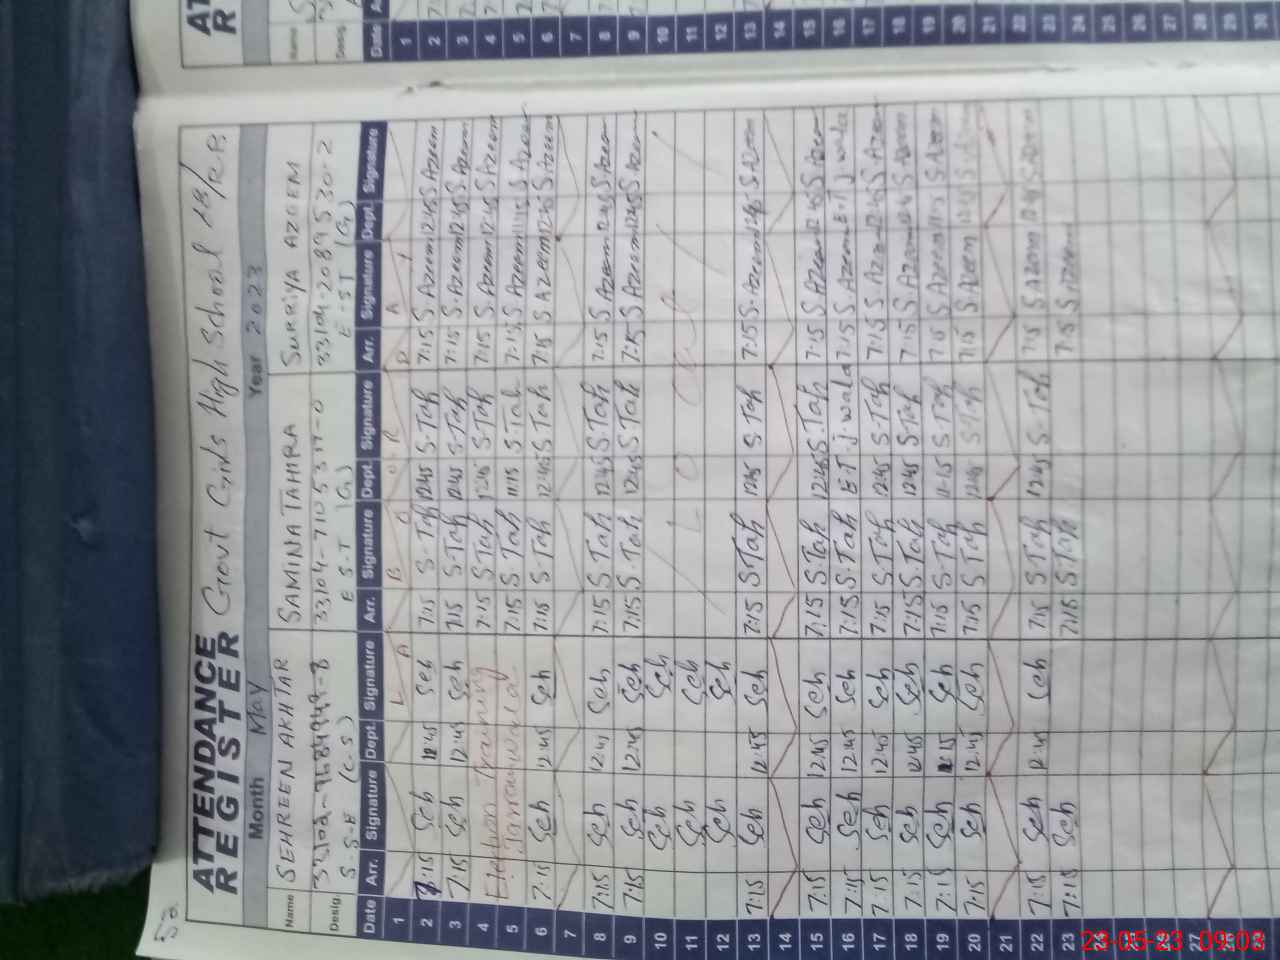 52
ATTENDANCE
REGISTER Govt Girls High School
Month May Year 2023
Name SEHREEN AKHTAR SAMINA TAHIRA SURRIYA AZEEM
33104-7105317-0 33104-2089530-2
Desig. S.S.E (C.S) E S.T (G) E.S.T (G)
Date Arr. Signature Dept. Signature Arr. Signature Dept. Signature Arr. Signature Dept. Signature
1 L A B O U R D A Y
2 7:15 Seh 12:45 Seh 7:15 S-Tah 12:45 S-Tah 7:15 S Azeem 12:45 S Azeem
3 7:15 Seh 12:45 Seh 7:15 S-Tah 12:45 S-Tah 7:15 S-Azeem 12:45 S Azeem
4 Election Training 7:15 S-Tah 12:45 S-Tah 7:15 S Azeem 12:45 S Azeem
5 Jarranwala 7:15 S Tah 11:15 S-Tah 7:15 S Azeem 11:15 S Azeem
6 7:15 Seh 12:45 Seh 7:15 S-Tah 12:45 S Tah 7:15 S Azeem 12:45 S Azeem
7
8 7:15 Seh 12:45 Seh 7:15 S Tah 12:45 S-Tah 7:15 S Azeem 12:45 S Azeem
9 7:15 Seh 12:45 Seh 7:15 S-Tah 12:45 S-Tah 7:15 S Azeem 12:45 S Azeem
10 Seh Seh
11 Seh Seh
12 Seh Seh
13 7:15 Seh 12:45 Seh 7:15 S Tah 12:45 S Tah 7:15 S-Azeem 12:45 S Azeem
14
15 7:15 Seh 12:45 Seh 7:15 S Tah 12:45 S Tah 7:15 S Azeem 12:45 S Azeem
16 7:15 Seh 12:45 Seh 7:15 S-Tah E.T. J.wala 7:15 S Azeem E.T J wala
17 7:15 Seh 12:45 Seh 7:15 S-Tah 12:45 S-Tah 7:15 S Azeem 12:45 S Azeem
18 7:15 Seh 12:45 Seh 7:15 S Tah 12:45 S-Tah 7:15 S Azeem 12:45 S Azeem
19 7:15 Seh 11:15 Seh 7:15 S-Tah 11-15 S-Tah 7:15 S Azeem 11:15 S Azeem
20 7:15 Seh 12:45 Seh 7:15 S Tah 12:45 S-Tah 7:15 S Azeem 12:45 S Azeem
21
22 7:15 Seh 12:45 Seh 7:15 S Tah 12:45 S-Tah 7:15 S Azeem 12:45 S Azeem
23 7:15 Seh 7:15 S Tah 7:15 S Azeem
24
25
26
27
28
29
30
23-05-23 09:03